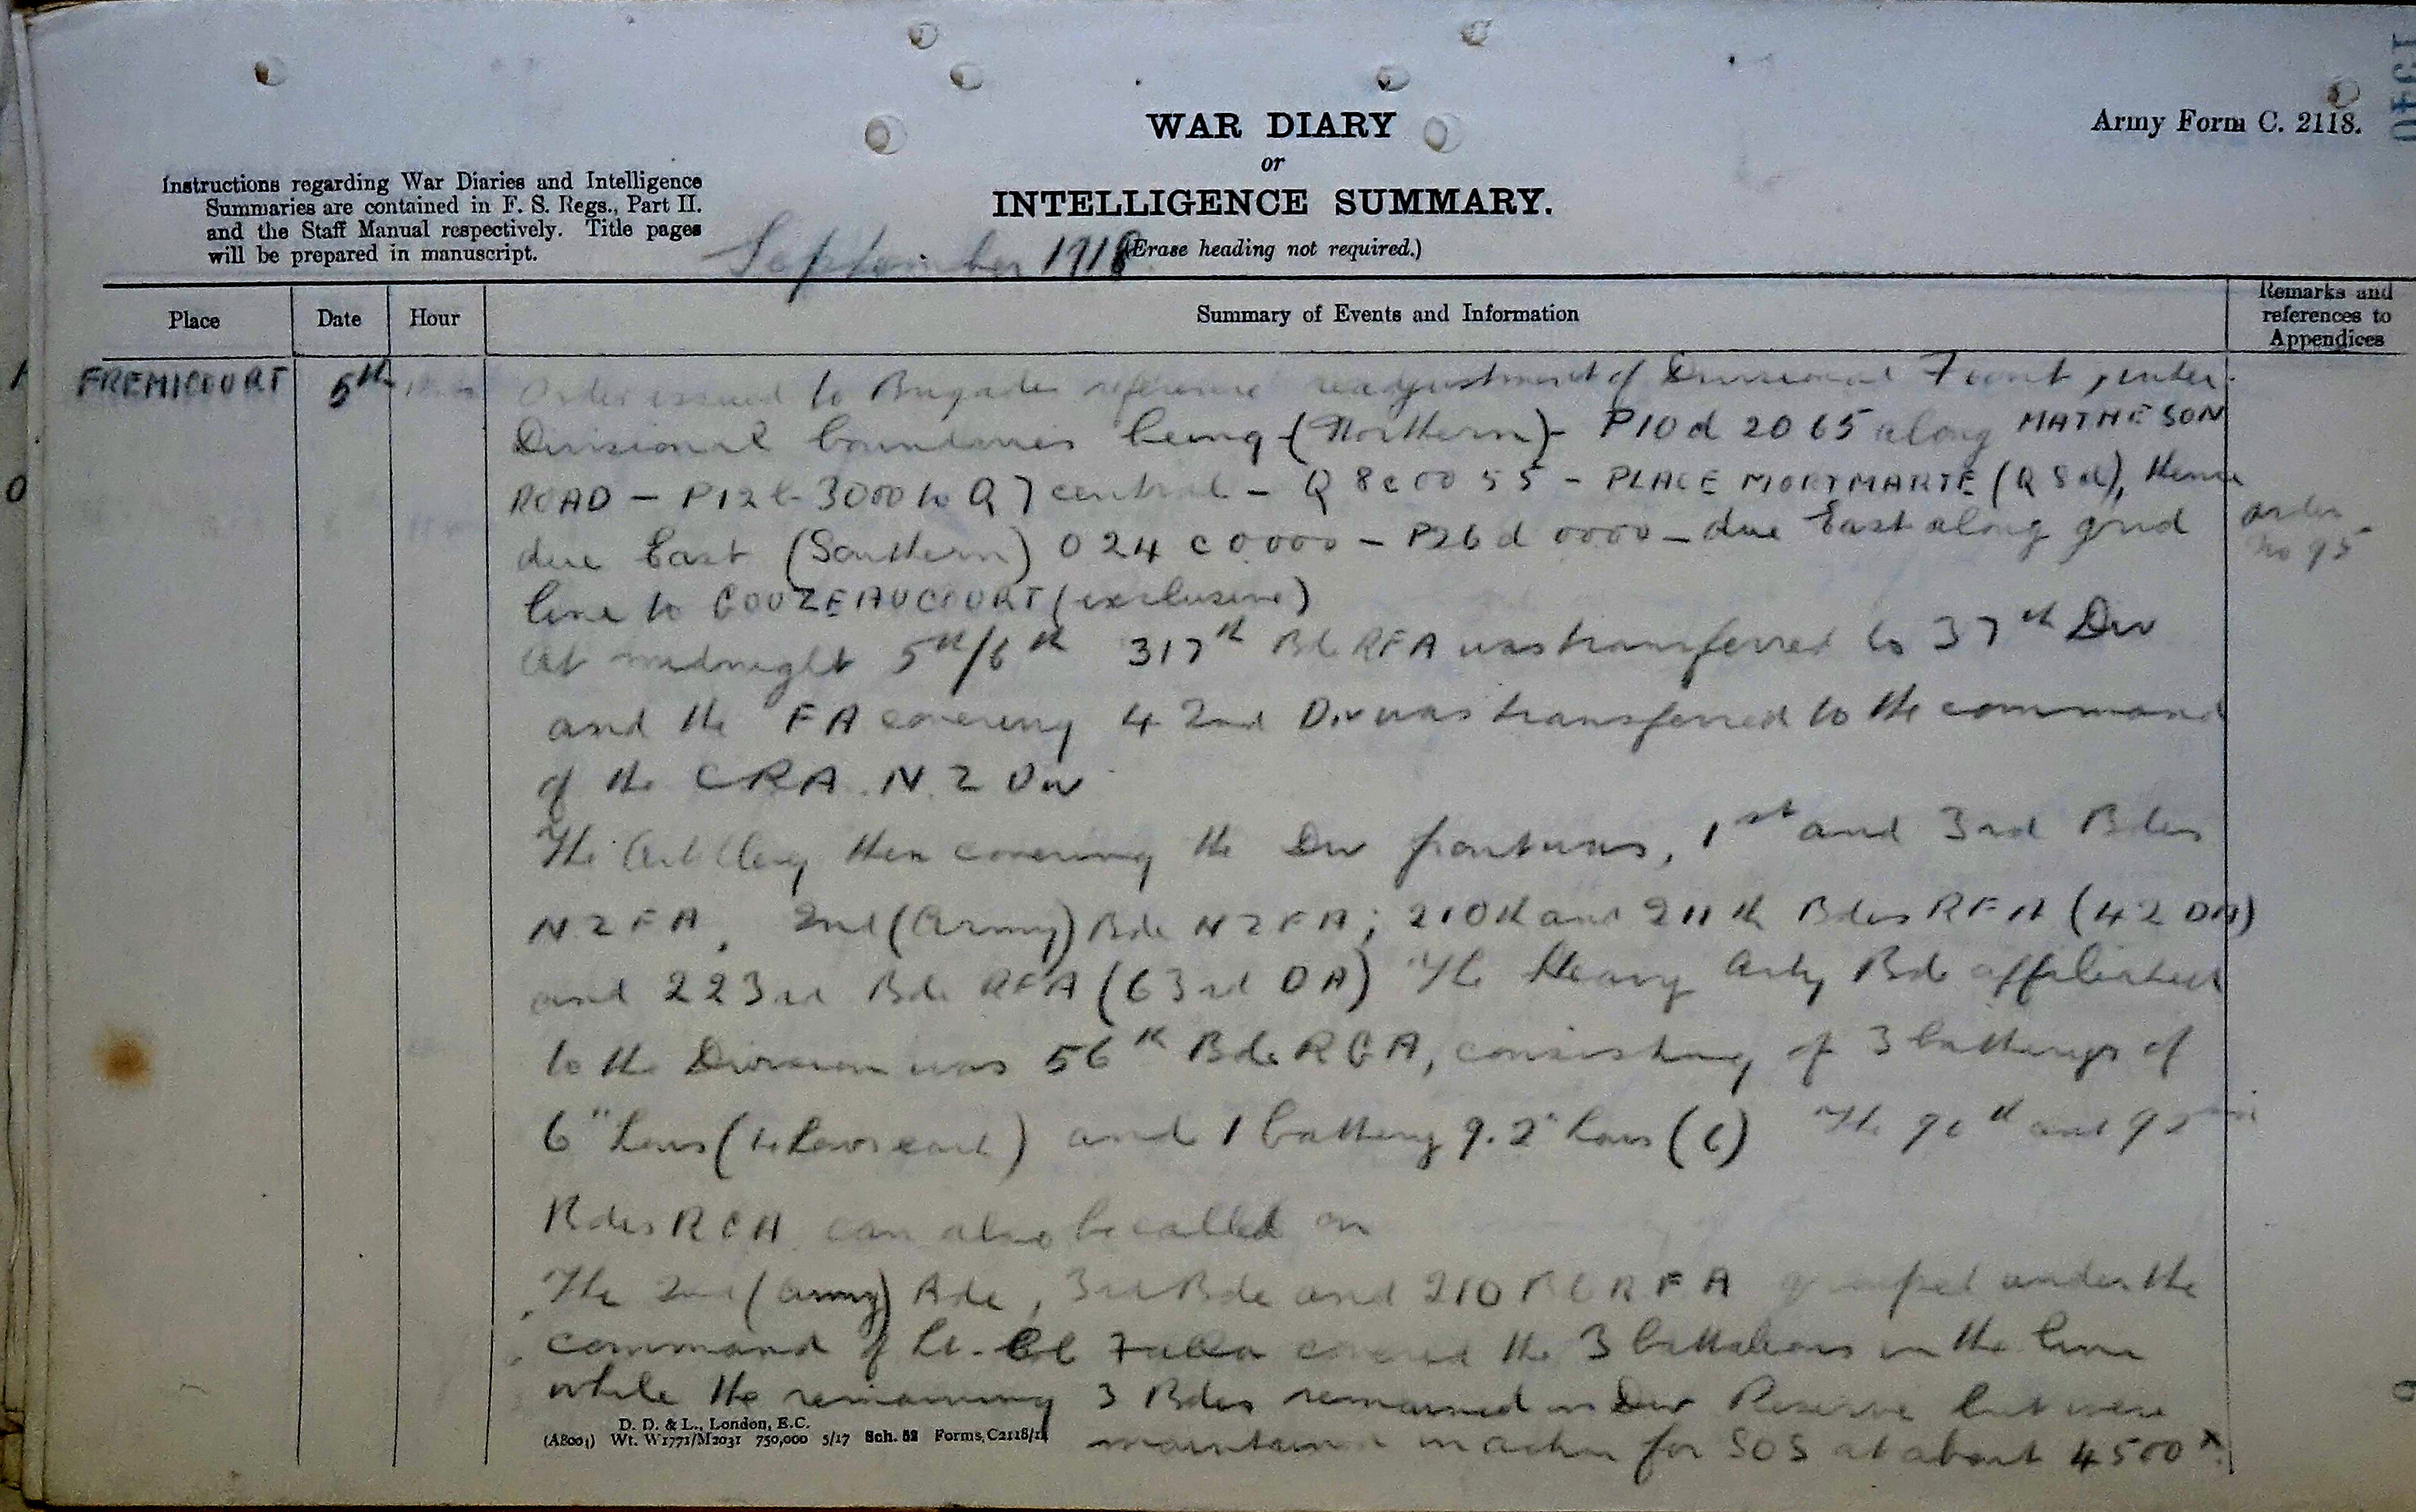 WAR DIARY
or
INTELLIGENCE SUMMARY.
(Erase heading not required.)
Army Form C. 2118.
Instructions regarding War Diaries and Intelligence
Summaries are contained in F. S. Regs., Part II.
and the Staff Manual respectively. Title pages
will be prepared in manuscript.
September 1918
Place Date Hour Summary of Events and Information Remarks and references to Appendices
FREMICOURT 5th Order issued to Brigades reference readjustment of Divisional Front, inter
Divisional boundaries being (Northern) - P10d 2065 along MATHESON
ROAD - P12b 3000 to Q7 central - Q8c00 55 - PLACE MORTMARTE (Q8d), thence
due East (Southern) O24 c0000 - P26d 0000 - due East along grid
Order No 95
line to GOUZEAUCOURT (exclusive)
At midnight 5th/6th 317th Bde RFA was transferred to 37th Div
and the FA covering 42nd Div was transferred to the command
of the CRA. N.Z Div
The Artillery then covering the Div front was, 1st and 3rd Bdes
NZFA, 2nd (Army) Bde NZFA; 210th and 211th Bdes RFA (42 DA)
and 223rd Bde RFA (63rd DA) The Heavy Arty Bde affiliated
to the Division was 56th Bde RGA, consisting of 3 batterys of
6" hows ( hows each) and 1 battery 9.2" hows (6) The 90th and
Bdes RGA can also be called on
The 2nd (Army) Bde, 3rd Bde and 210 Bde RFA grouped under the
command of Lt-Col Falla covered the 3 battalions in the line
while the remaining 3 Bdes remained in Div Reserve but were
maintained in action for SOS at about 4500x.
D. D. & L., London, E.C.
(A8001) Wt. W1771/M2031 750,000 5/17 Sch. 52 Forms, C2118/14